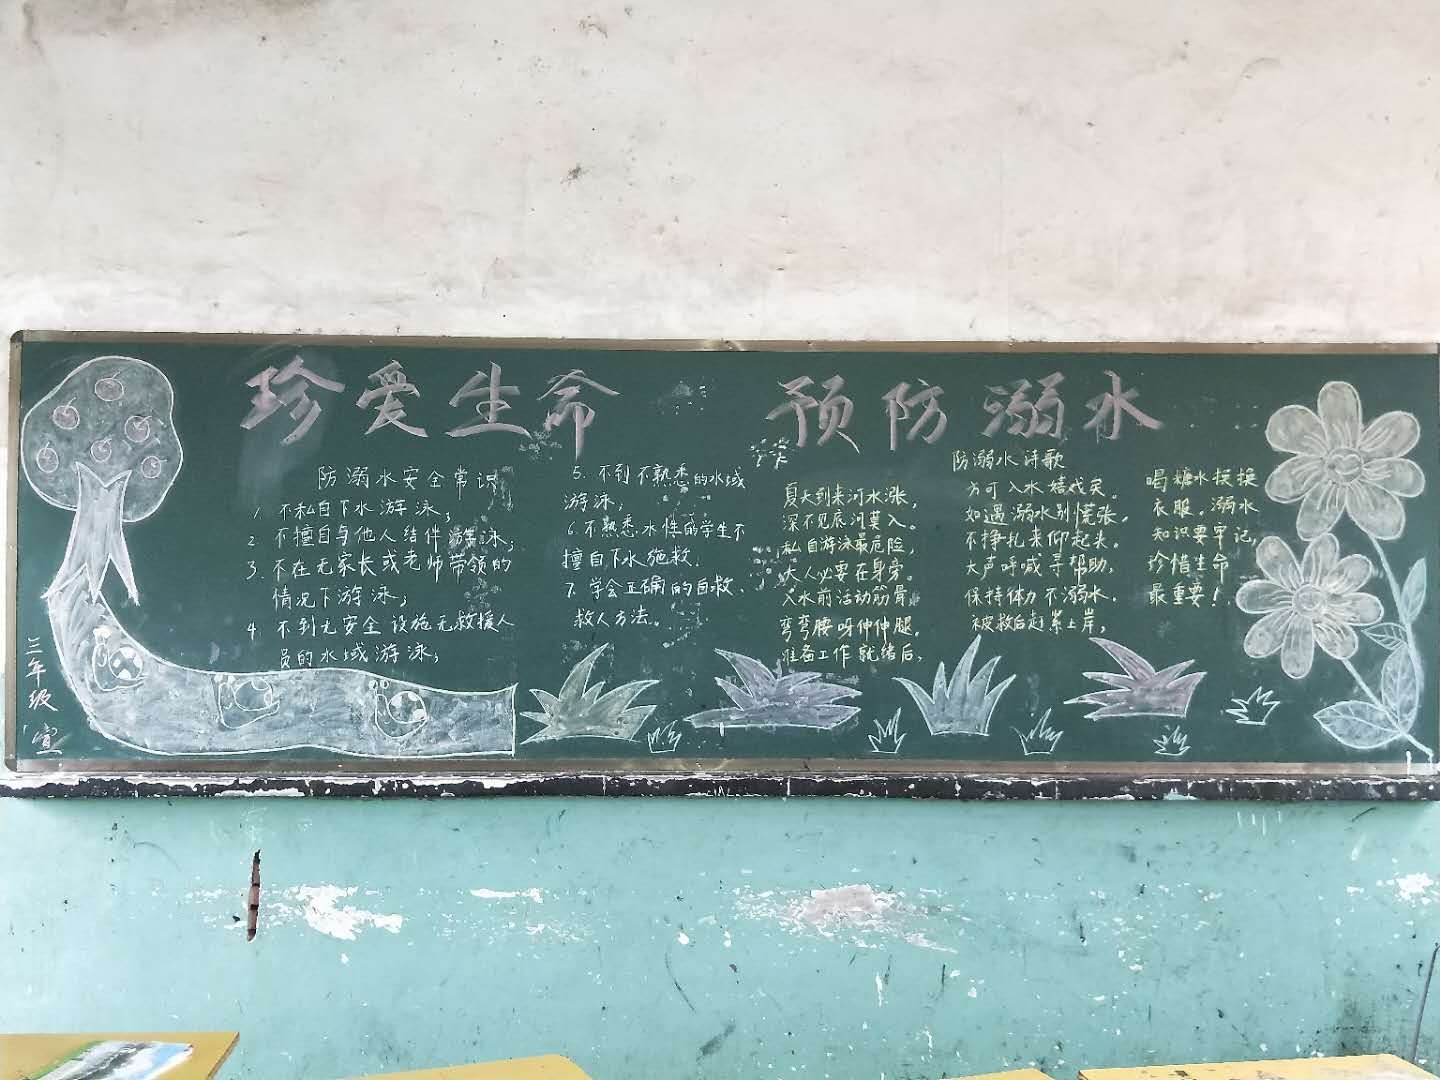 珍爱生命 预防溺水
防溺水安全常识
1、不私自下水游泳；
2、不擅自与他人结伴游泳；
3、不在无家长或老师带领的
情况下游泳；
4、不到无安全设施无救援人
员的水域游泳；
5、不到不熟悉的水域
游泳；
6、不熟悉水性的学生不
擅自下水施救.
7、学会正确的自救、
救人方法。
防溺水诗歌
夏天到来河水涨,
深不见底河莫入。
私自游泳最危险,
大人必要在身旁。
入水前活动筋骨,
弯弯腰呀伸伸腿。
准备工作就绪后,
方可入水嬉戏
如遇溺水别慌张。
不挣扎来仰起头。
大声呼喊寻帮助,
保持体力不溺水.
被救后赶紧上岸,
喝糖水换换
衣服。溺水
知识要牢记,
珍惜生命
最重要！
三年级
宣